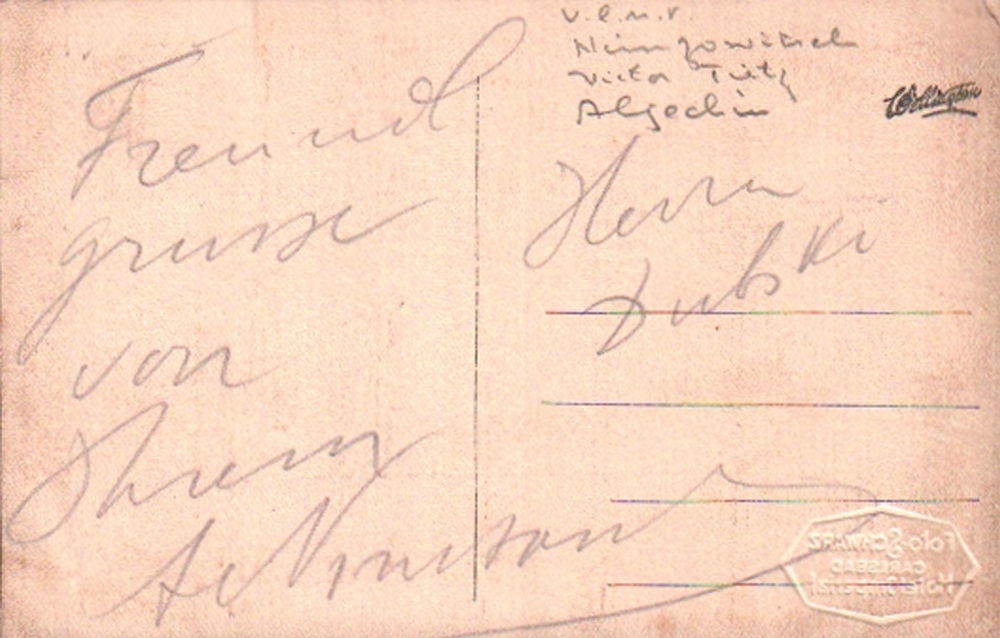 v.l.n.r.
Nimzowitsch
Victor Tietz
Algechin
Wellington
Freund
grusse
von
Ihrem
A Nimzow
Herrn
Dubski
Foto-SCHWARZ
CARLSBAD
Hotel Imperial